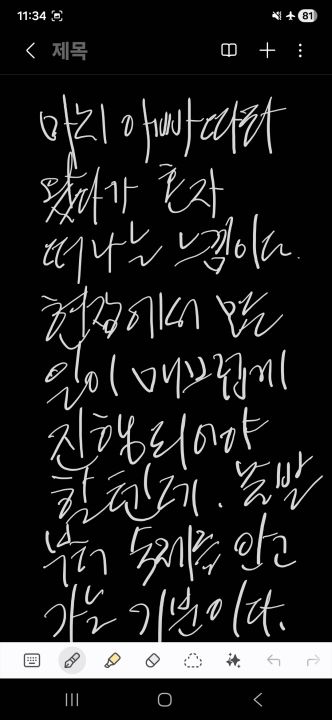 11:34
81
제목
마치 아빠따라
왔다가 혼자
떠나는 느낌이다.
현장에서 모든
일이 매끄럽게
진행되어야
할텐데. 출발
부터 숙제를 안고
가는 기분이다.